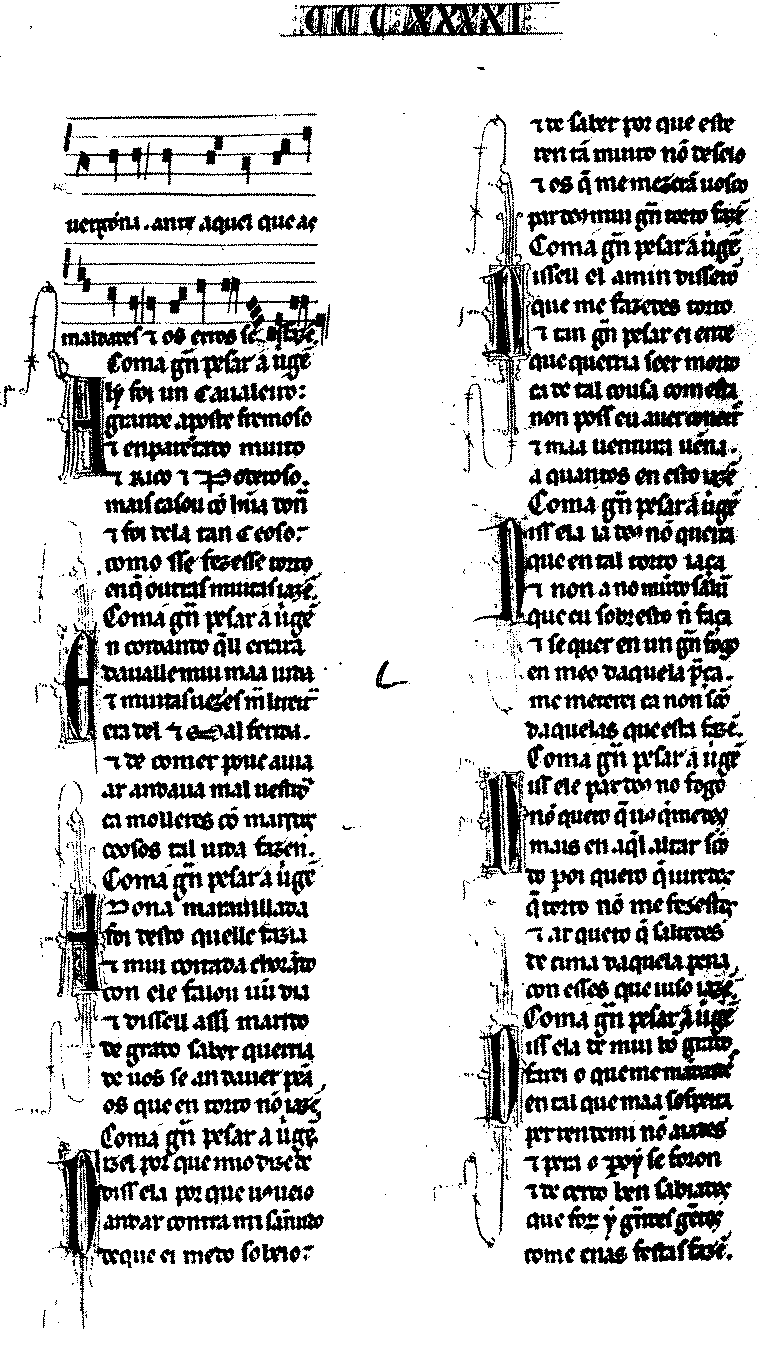 CCCXXXXI
uergōna . ante aquel que as
maldades ⁊ os erros sē
Coma gñ pesar á uigē
ly foi un Caualeiro:
grande aposte fremoso
⁊ enparentado muito
⁊ Rico ⁊ Poderoso.
mais casou cō hũa don
⁊ foi dela tan ceoso:
como sse fezesse torto
enq̄ outras muitas iazē.
Coma gñ pesar á uigē
n comendo q̄ll errara
daualle mui maa uida
⁊ muitas uezes
era del ⁊ mal ferida.
⁊ de comer pouc auia
ar andaua mal uestida
ca molleres cō maridos
ceosos tal uida fazen.
Coma gñ pesar á uigē
Dona marauillada
foi desto quelle fazia
⁊ mui coitada chorādo
con ele falou un dia
⁊ dissell assi marido
de grado saber querria
de uos se an dauer perā
os que en torto nō iazē
Coma gñ pesar á uigē
izel por que mio dizede
diss ela por que
andar contra mi sannudo
de que ei medo sobeio:
⁊ de saber por que este
ren tā muito nō deseio
⁊ os q̄ me mezcrā uosco
par deus mui gñ torto fazē
Coma gñ pesar á uigē
issell el amin disserō
que me fazedes torto
⁊ tan gñ pesar ei ende
que querria seer morto
ca de tal cousa com esta
non poss eu auer conort
⁊ maa uentura uēna.
a quantos en esto iazē
Coma gñ pesar á uigē
iss ela ia deus nō queira
que en tal torto iaça
⁊ non a no mūdo salua
que eu sobresto ñ faça
⁊ se quer en un gñ fogo
en meo daquela p̄ça.
me meterei ca non sōo
daquelas que esta fazē.
Coma gñ pesar á uigē
iss ele par deus no fogo
nō quero q̄ uos q̄imedes
mais en aq̄l altar sōo
do poi quero q̄ iuredes
q̄ torto nō me fezestes
⁊ ar quero q̄ saltedes
de cima daquela pena
con esses que iuso iazē.
Coma gñ pesar á uigē
iss ela de mui bō grado
farei o que me mandade
en tal que maa sospeita
per ren de mi nō aiades
⁊ pera o poy se foron
⁊ de certo ben sabiades
que foz y gñdes gētes
come enas festas fazē.